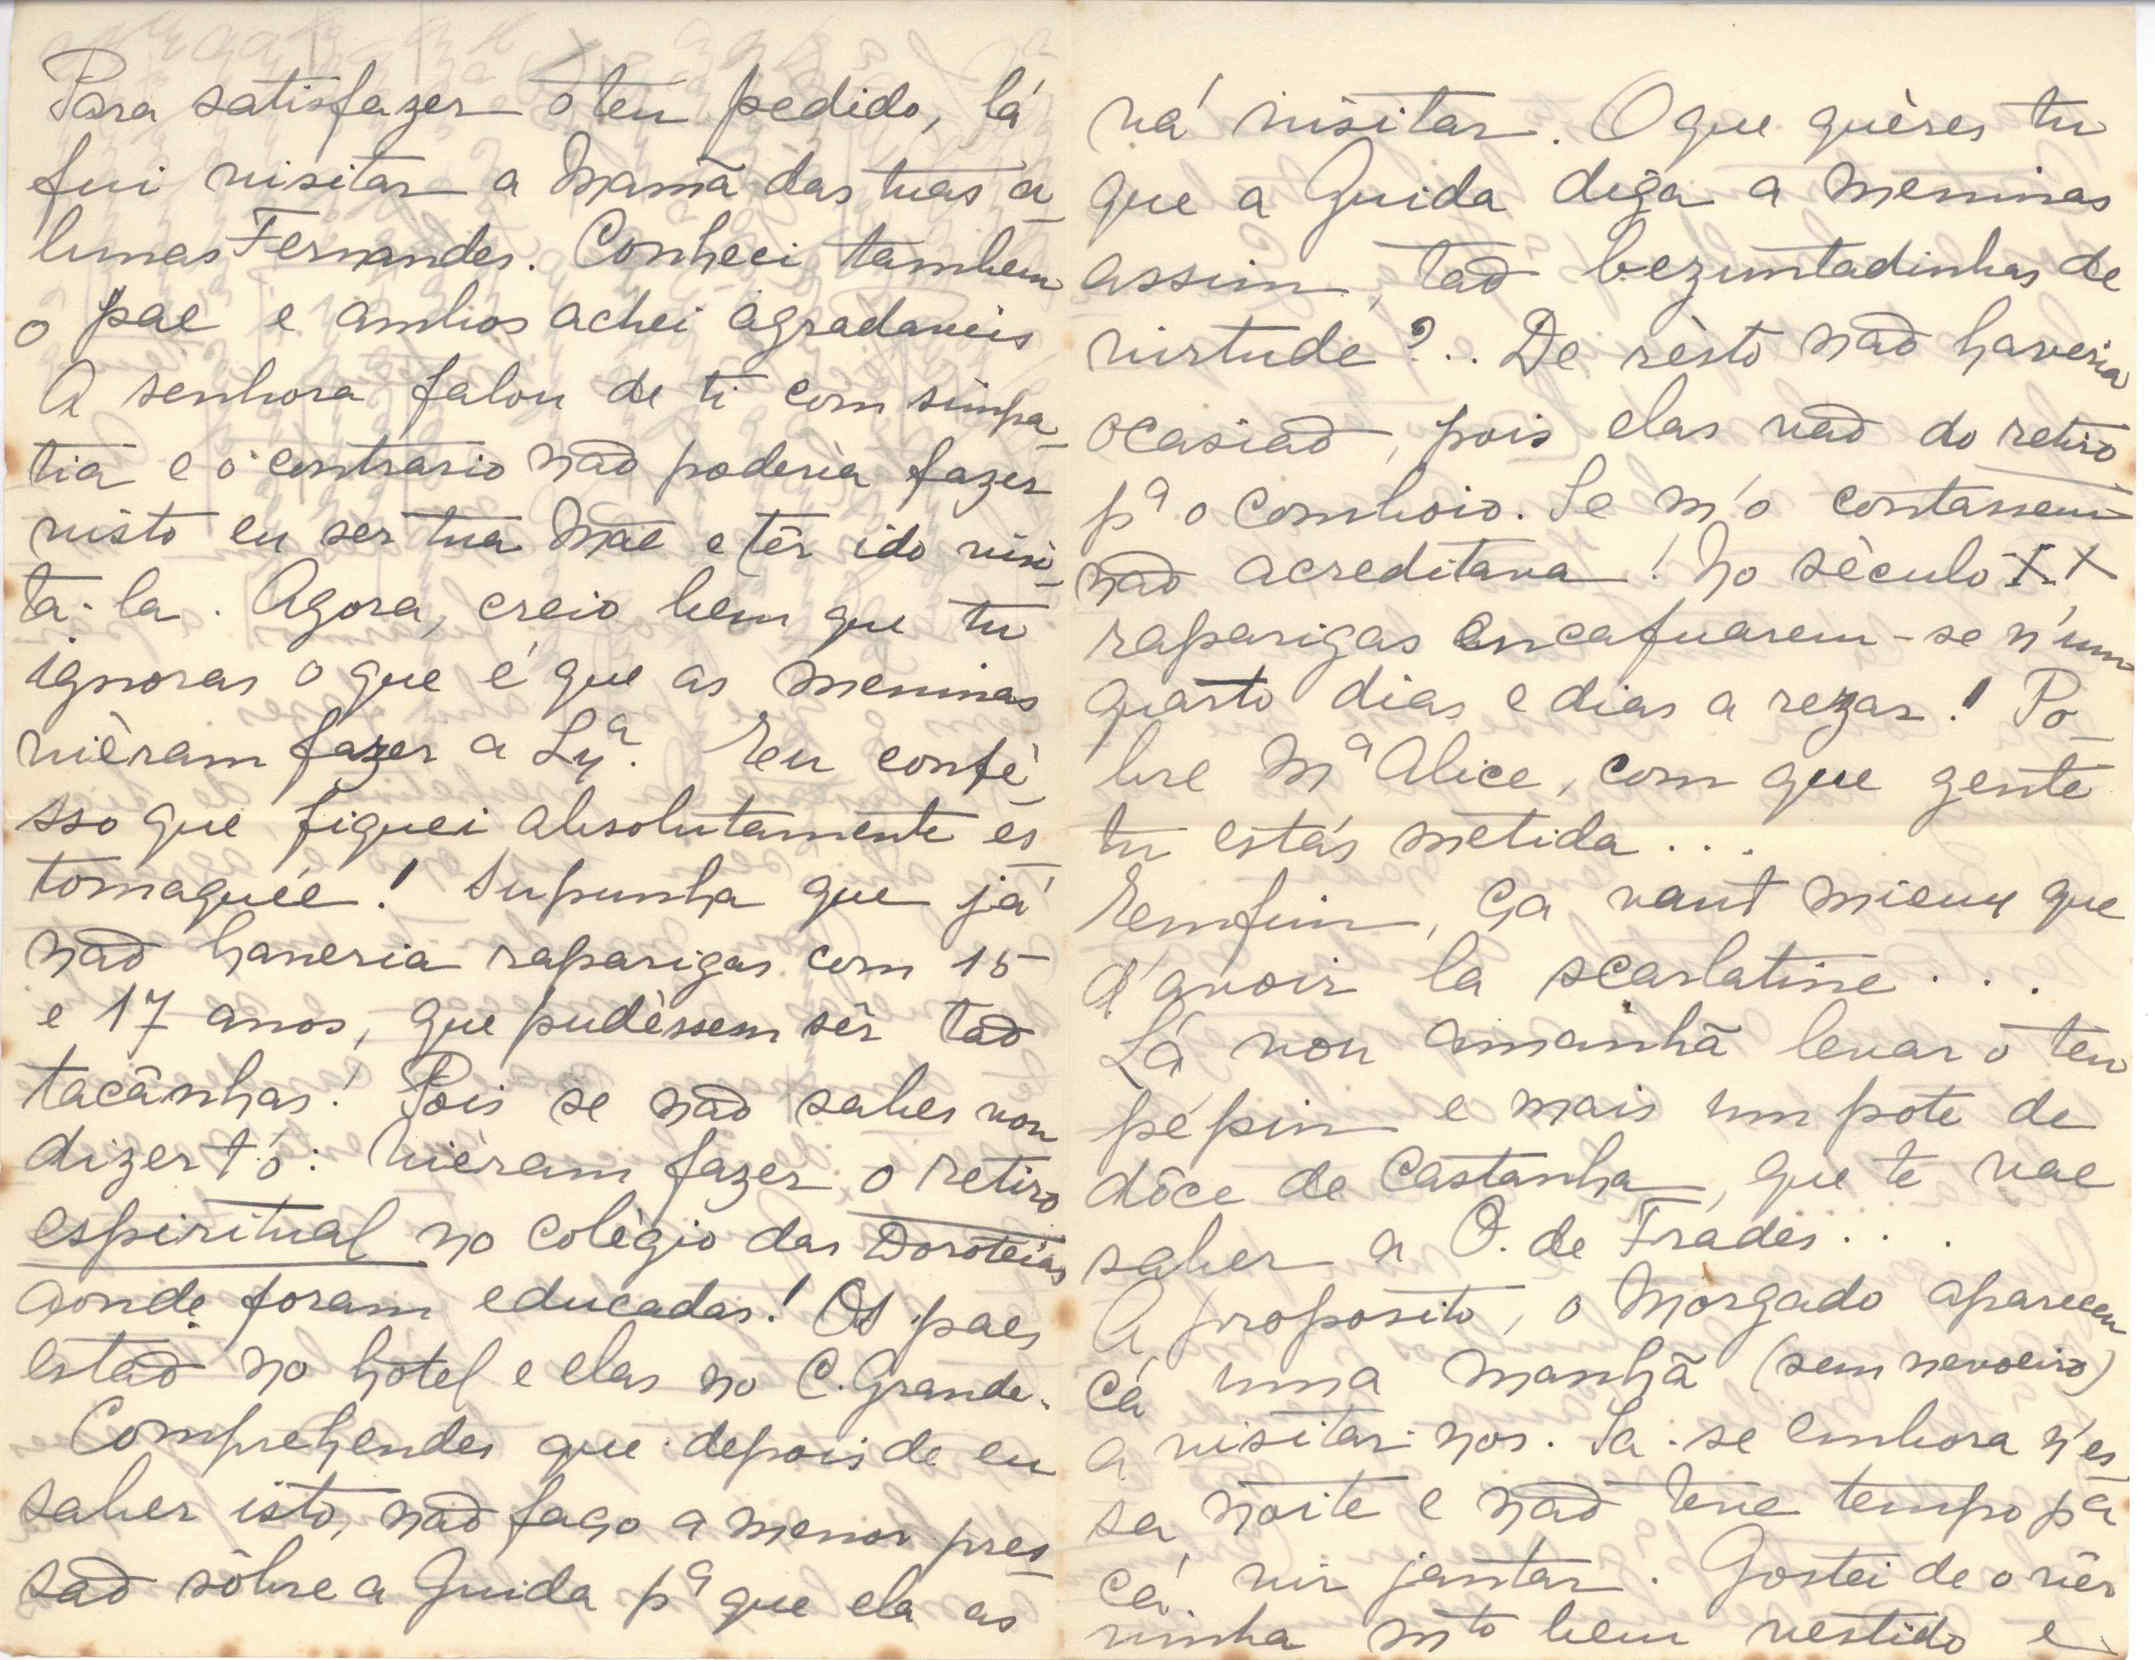 Para satisfazer o teu pedido, lá
fui visitar a Mamã das tuas a-
lunas Fernandes. Conheci tambem
o pae e ambos achei agradaveis
A senhora falou de ti com simpa-
tia e o contrario não poderia fazer
visto eu ser tua Mãe e têr ido visi-
ta-la. Agora, creio bem que tu
ignoras o que é que as meninas
vièram fazer a Lxª. Eu confè-
sso que fiquei absolutamente es-
tomaquée! Supunha que já
não haveria raparigas com 15
e 17 anos, que pudèssem sêr tão
tacânhas! Pois se não sabes vou
dizer t'ó: Vièram fazer o retiro
espiritual no colègio das Doroteias
aonde foram educadas! Os paes
estão no hotel e elas no C. Grande.
Comprehendes que depois de eu
saber isto, não faço a menor pres-
são sôbre a Guida pª que ela as
vá visitar. O que quères tu
que a Guida diga a meninas
assim, tão bezuntadinhas de
virtude?.. De rèsto não haveria
ocasião, pois elas vão do retiro
pª o comboio. Se m'o contassem
não acreditava! No sèculo XX
raparigas encafuarem-se n'um
quarto dias e dias a rezar! Po-
bre Mª Alice, com que gente
tu estás metida...
Emfim, ça vaut mieux que
d'avoir la scarlatine...
Lá vou amanhã levar o teu
pépin e mais um pote de
dôce de castanha, que te vae
saber a O. de Frades...
A proposito, o Morgado apareceu
cá uma manhã (sem nevoeiro)
a visitar-nos. Ia-se embora n'es-
sa noite e não teve tempo pª
cá vir jantar. Gostei de o vêr
vinha mto bem vestido e